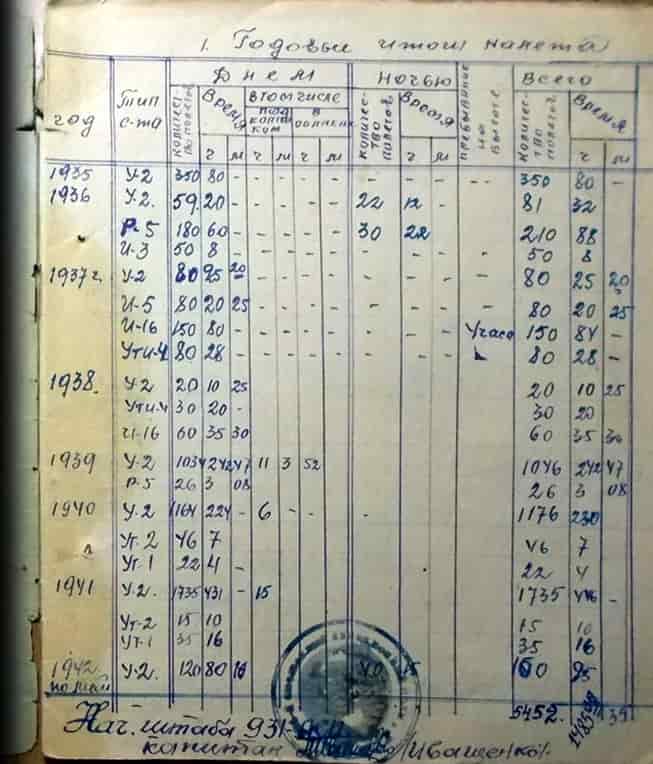 1. Годовые итоги налета
год Тип с-та Днем Ночью пребывание на высоте Всего
количество полетов Время в том числе количество полетов Время количество полетов Время
под колпаком в облаках
ч м ч м ч м ч м ч м
1935 У-2 350 80 - - - - - - - - 350 80 -
1936 У-2. 59 20 - - - - - 22 12 - 81 32
Р-5 180 60 - - - - - 30 28 - 210 88
И-3 50 8 - - - - - - - 50 8
1937 г. У-2 80 25 20 - - - - - - - - 80 25 20
И-5 80 20 25 - - - - - - - - 80 20 25
И-16 150 80 - - - - - - - 4 часа 150 84 -
Ути-4 80 28 - - - - - - - 80 28 -
1938. У-2 20 10 25 20 10 25
Ути-4 30 20 - 30 20
И-16 60 35 30 60 35 30
1939 У-2 242 47 11 3 52 1046 242 47
Р-5 26 3 08 26 3 08
1940 У-2 1164 224 - 6 - - - 1176 230
Ут-2 46 7 46 7
Ут-1 22 4 - 22 4
1941 У-2. 1735 431 - 15 1735 446 -
Ут-2 15 10 15 10
Ут-1 35 16 35 16
1942 У-2. 120 80 16 40 15 160 95
по май
5452. 39
Нач. штаба 931
капитан /Иващенко/.